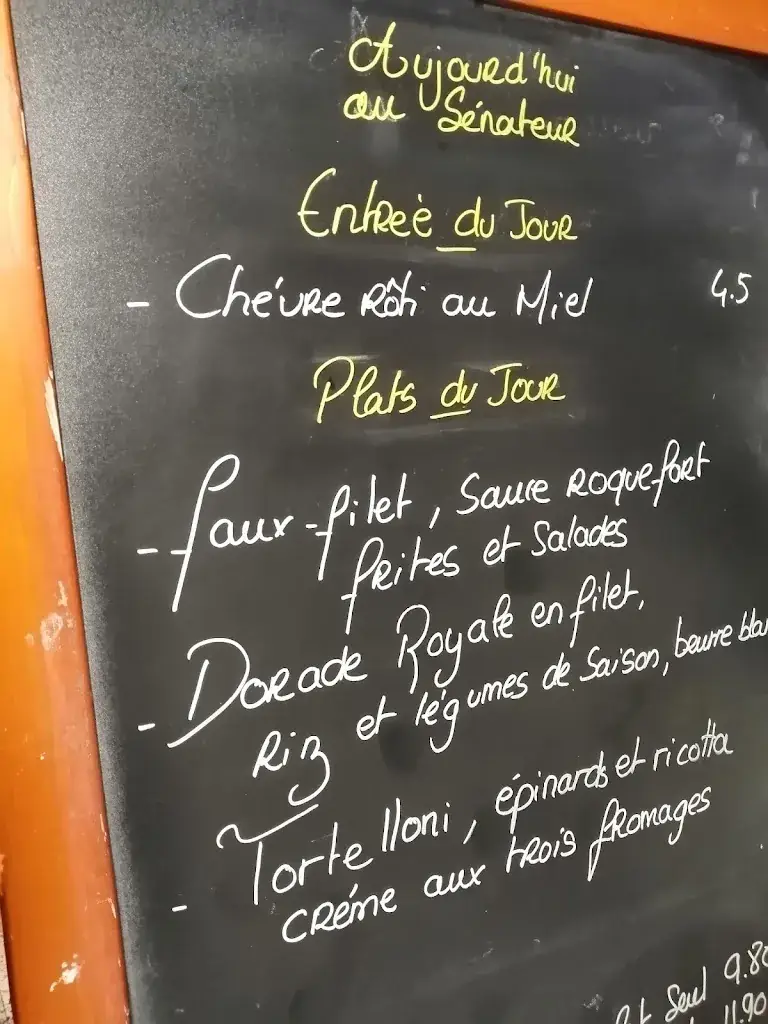 Aujourd'hui
au Sénateur
Entreé du Jour
- Chévre Rôti au Miel 4.5
Plats du Jour
- faux-filet, Sauce Roquefort
frites et Salades
- Dorade Royale en filet,
Riz et légumes de Saison, beurre
- Tortelloni, épinards et ricotta
créme aux trois fromages
Seul 9.80
11.90